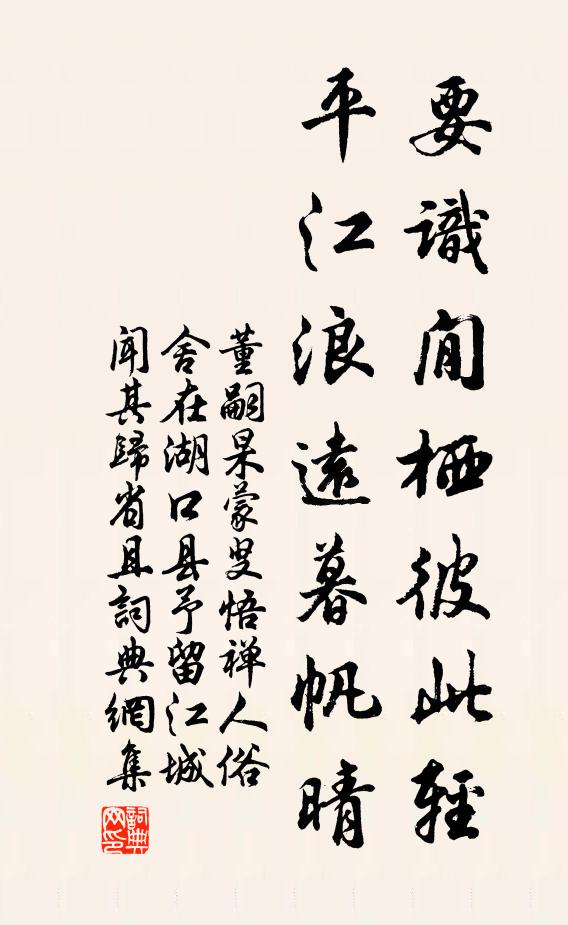 要識閒栖彼此輕
平江浪遠暮帆晴
董嗣杲蒙叟悟禅人俗
舍在湖口县予留江城
闻其歸省且詞典網集
詞典网印